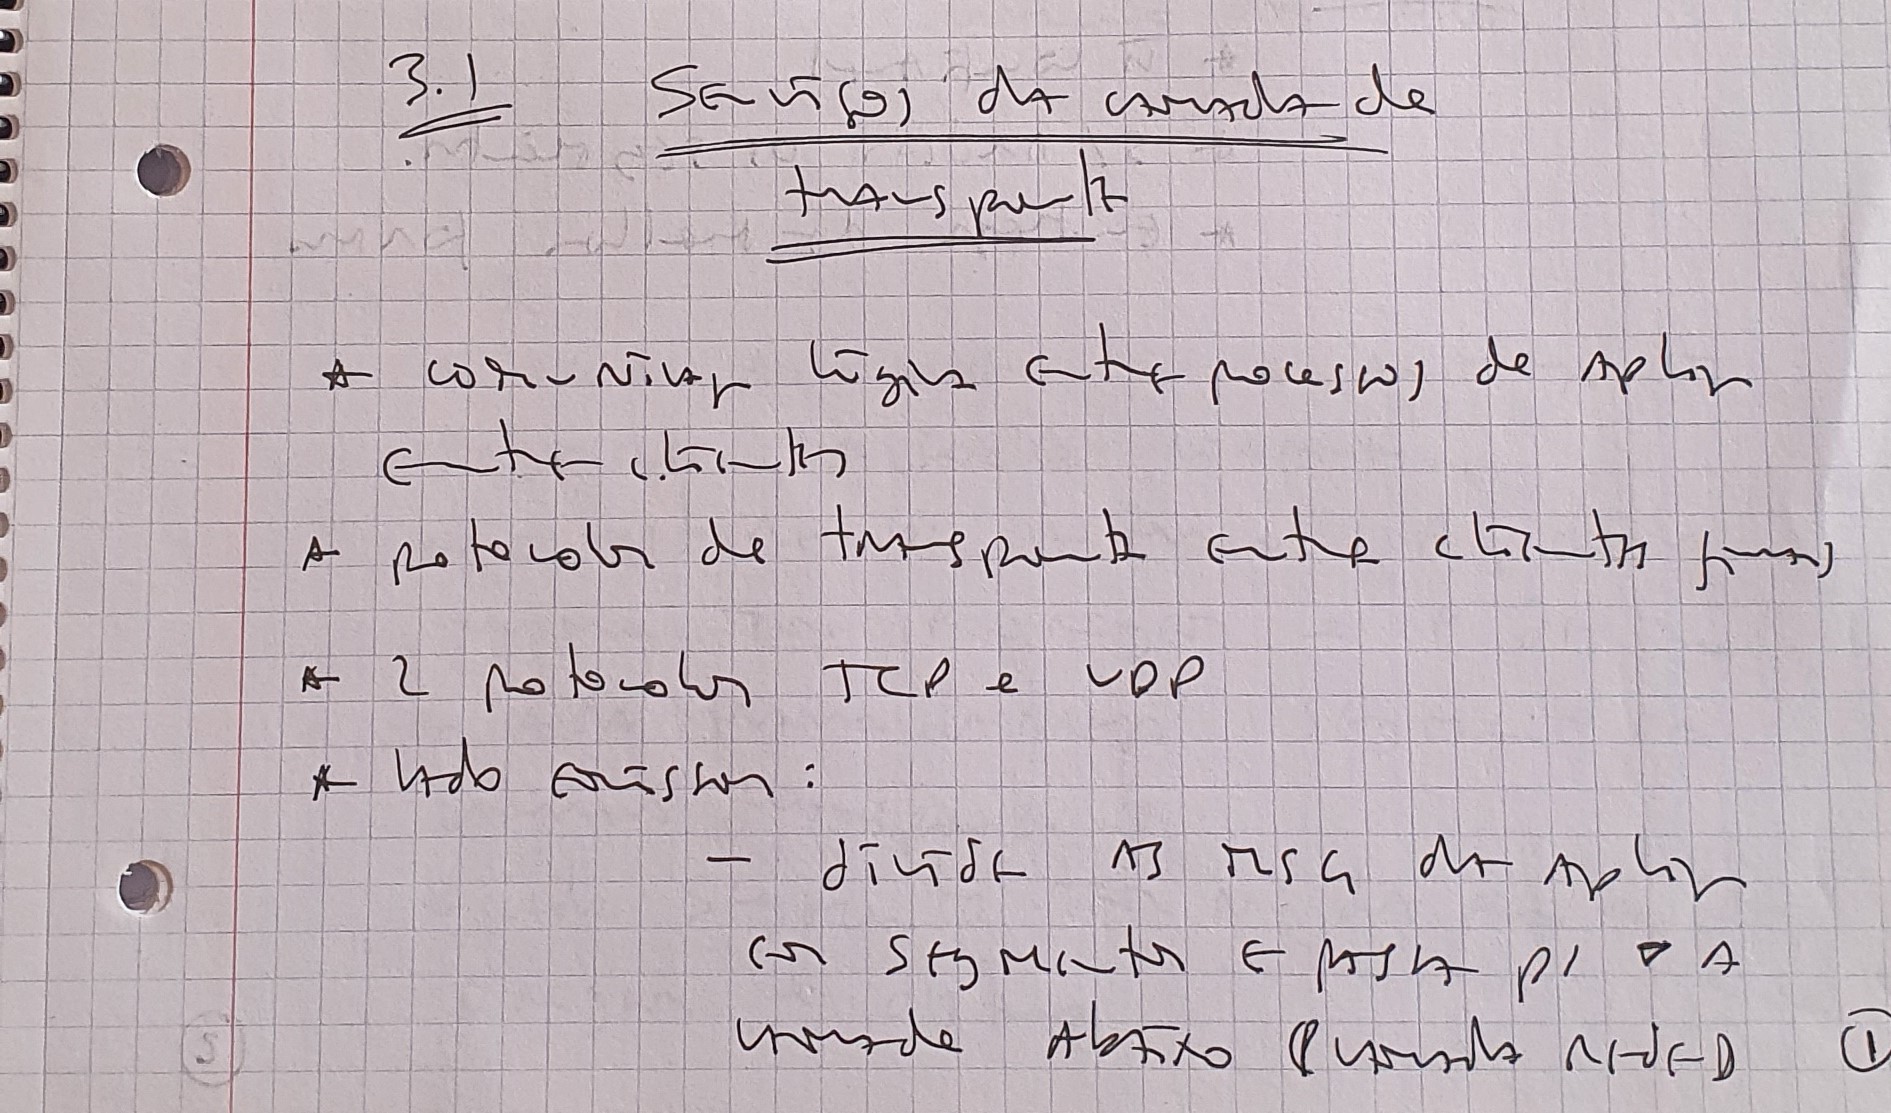 3.1 Serviços da camada de
transporte
* comunicaç lógica entre processos de aplicaç
entre clientes
* protocolos de transporte entre clientes finais
* 2 protocolos TCP e UDP
* lado emissor:
- divide as msg da aplicaç
em segmentos e passa p/ a
camada abaixo (camada rede) ①
5